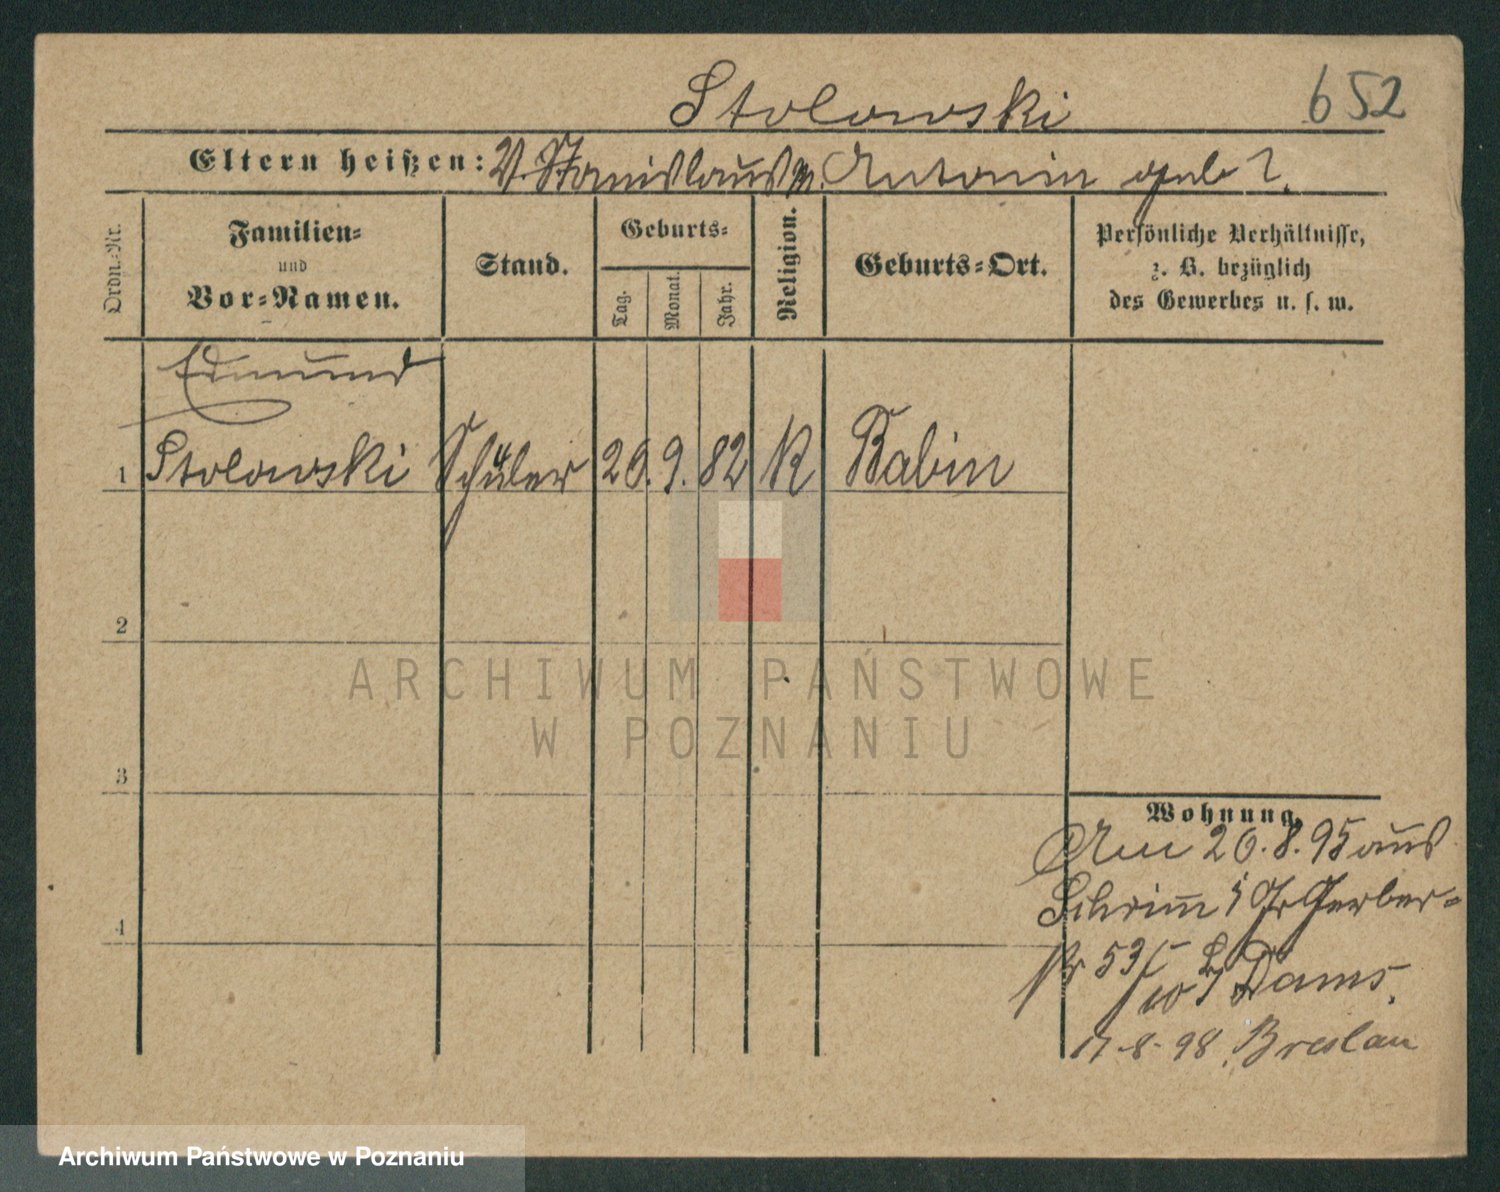 Stolowski
652
Eltern heißen: V. Stanislaus M. Antonin geb ?.
Ordn.-Nr.
Familien-
und
Vor-Namen.
Stand.
Geburts-
Tag.
Monat.
Jahr.
Religion.
Geburts-Ort.
Persönliche Verhältnisse,
z. B. bezüglich
des Gewerbes u. s. w.
Edmund
1 Stolowski Schüler 20. 9. 82 K Babin
2
ARCHIWUM PAŃSTWOWE
W POZNANIU
3
Wohnung.
Am 20.8.95 aus
Schrimm Gerber-
4
str 53 Dams.
17-8-98. Breslau
Archiwum Państwowe w Poznaniu